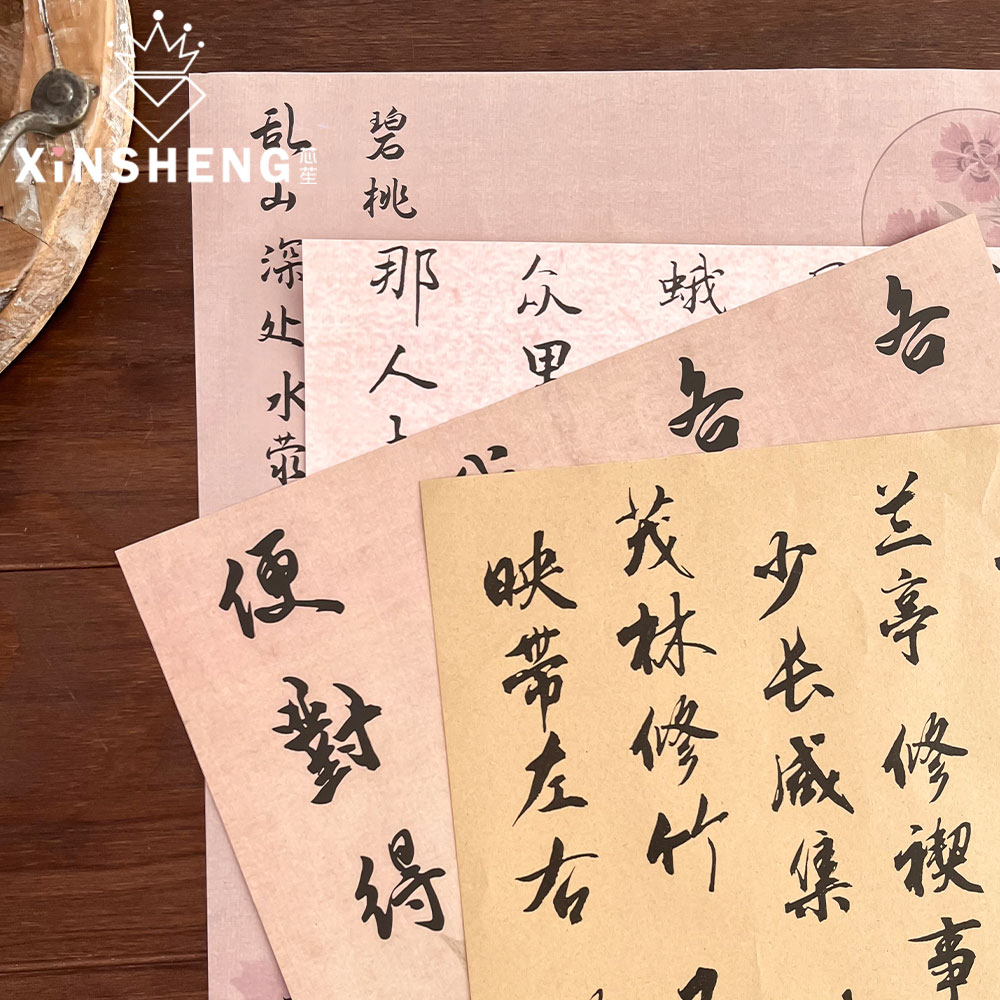 XiNSHENG
芯苼
碧桃
乱山深处水萦
蛾
众里
那人
各
各
便對得
兰亭修禊事
少长咸集
茂林修竹
映带左右